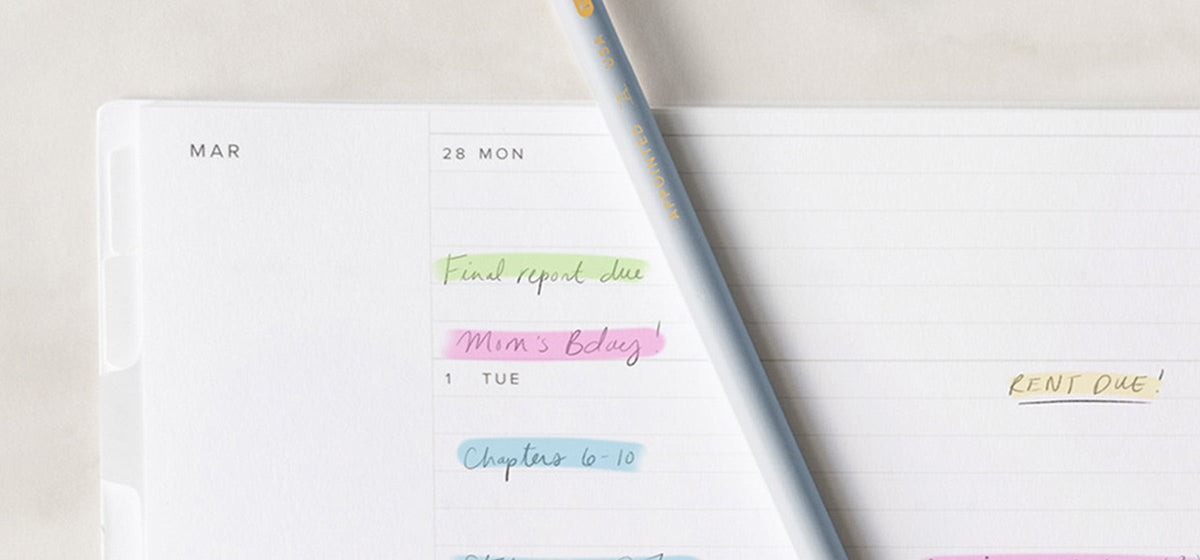 USA
APPOINTED
MAR
28 MON
Final report due
Mom's Bday!
1 TUE
RENT DUE!
Chapters 6-10